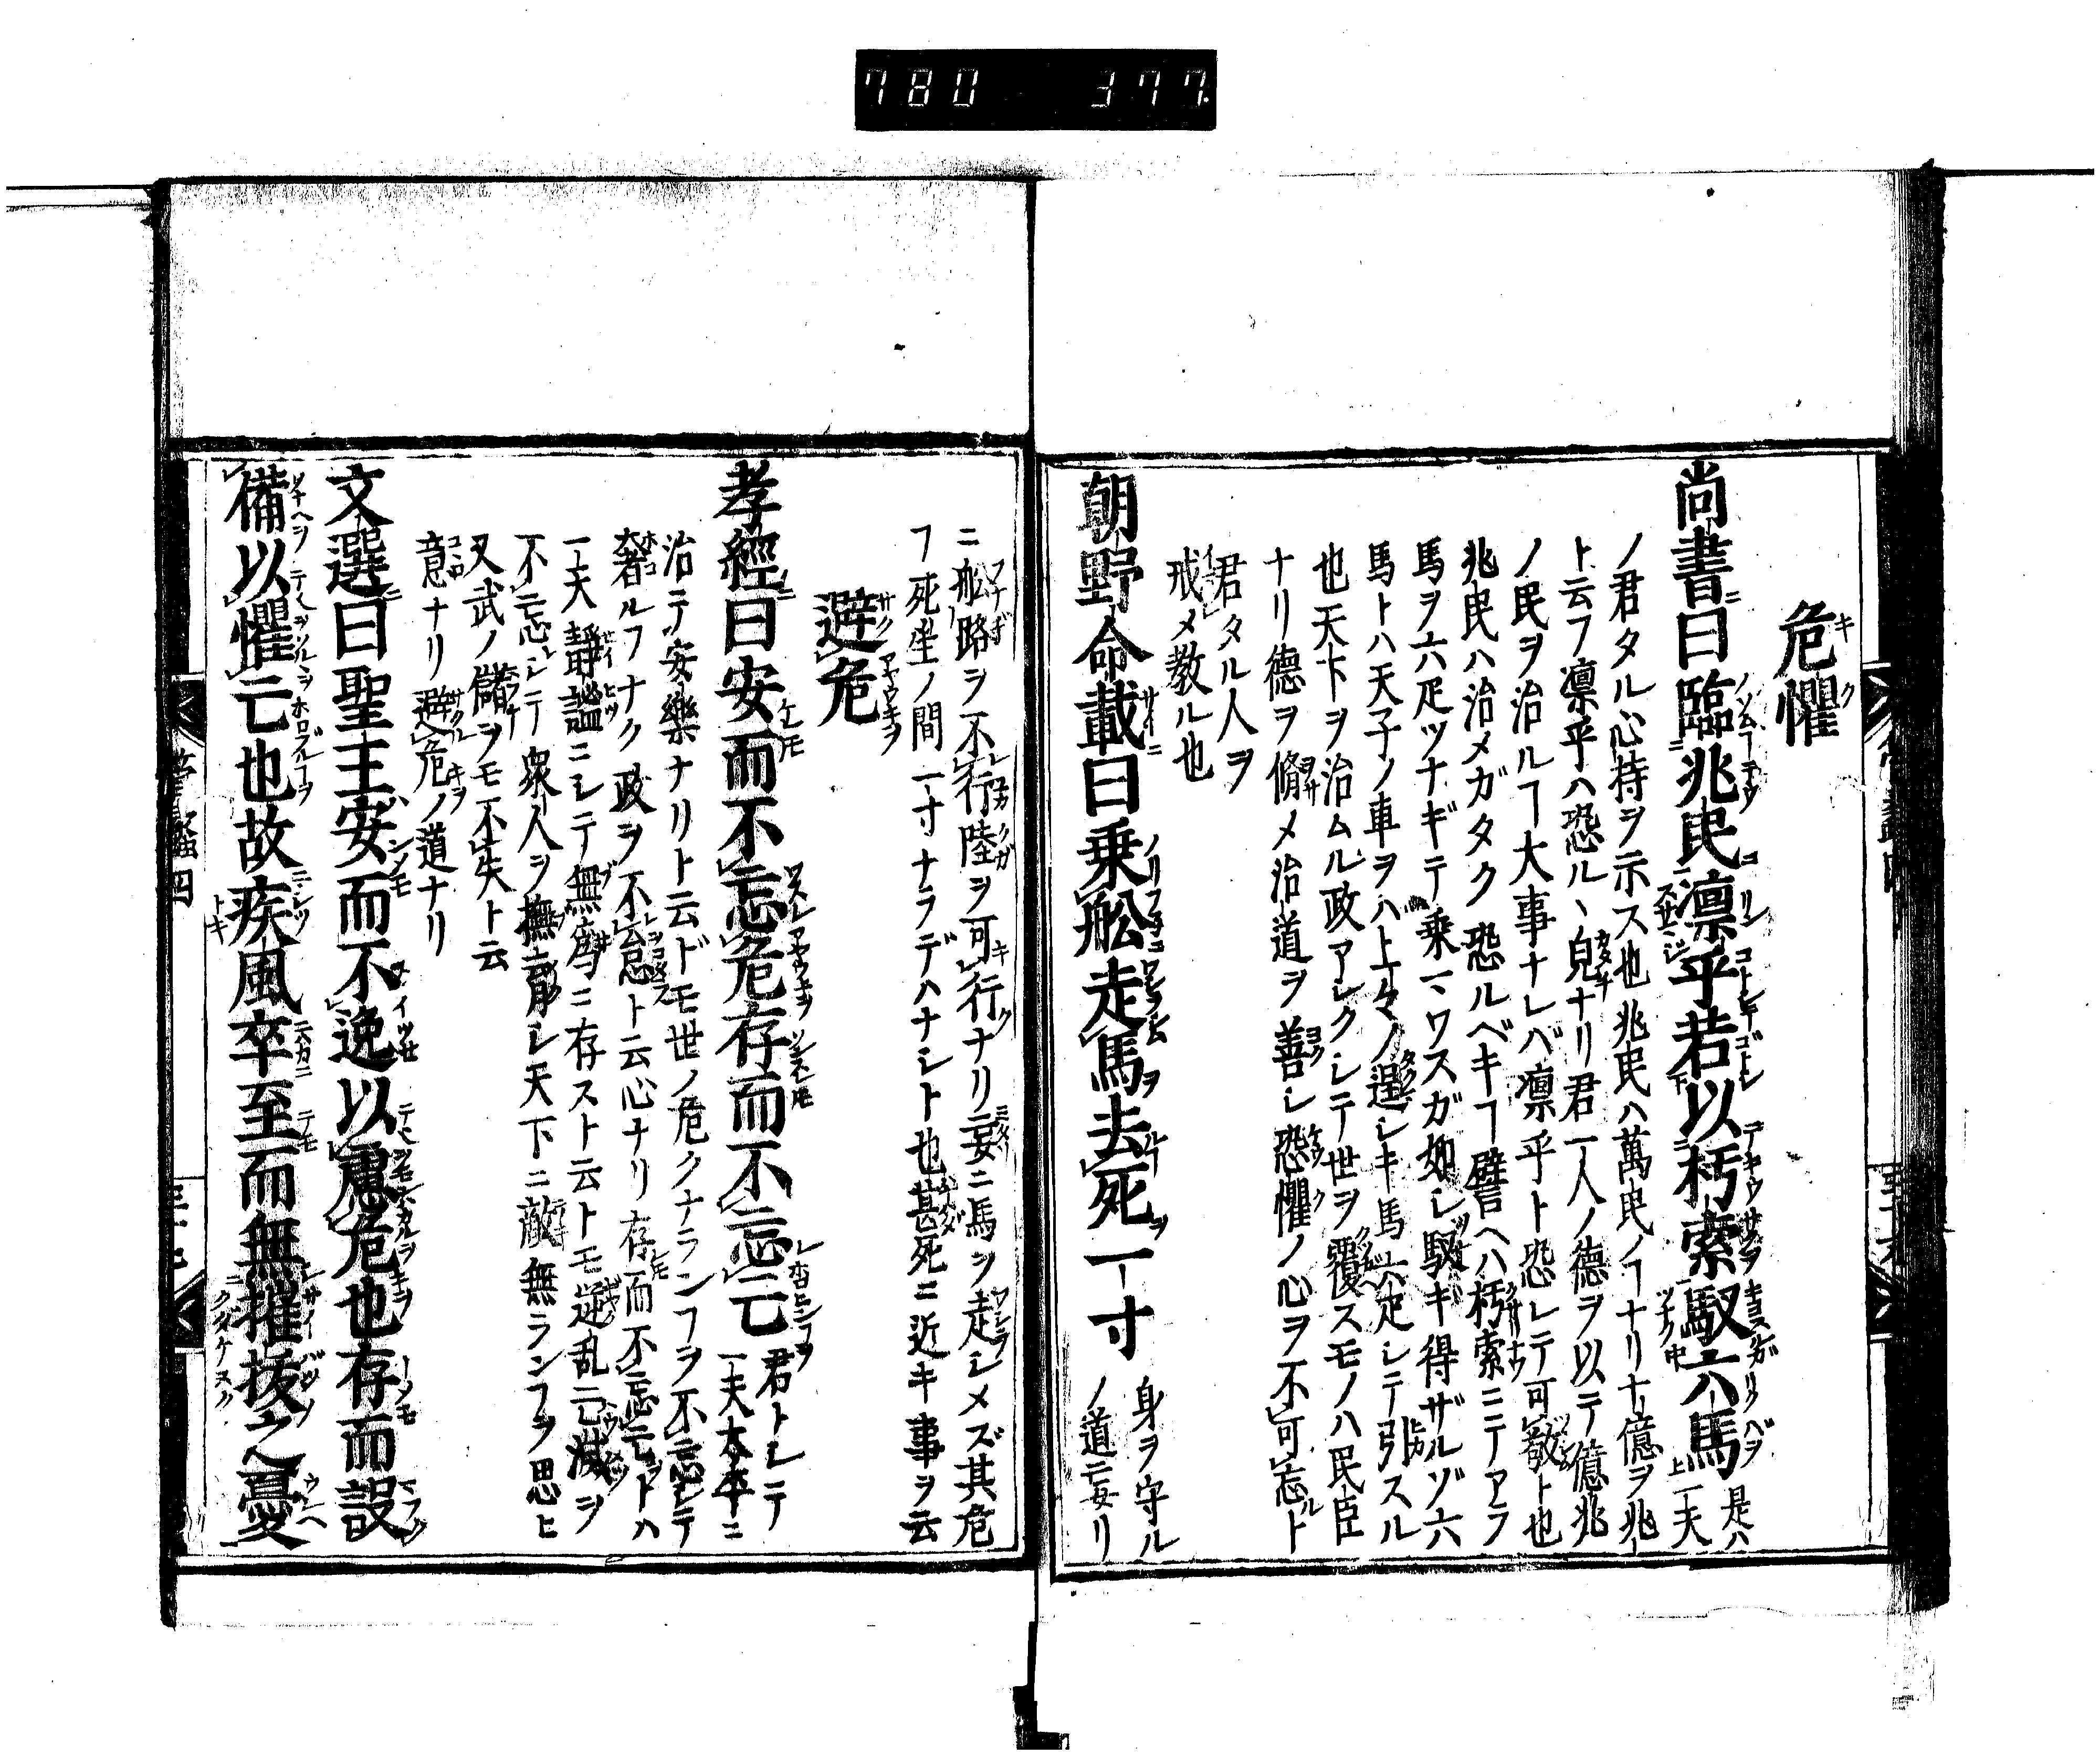 780 377
危懼
尚書曰臨兆民凛乎若以朽索馭六馬 是ハ一天
ノ君タル心持ヲ示ス也兆民ハ萬民ノヿナリ十億ヲ兆
ト云フ凛乎ハ恐ルヽ皃ナリ君一人ノ德ヲ以テ億兆
ノ民ヲ治ルヿ大事ナレバ凛乎ト恐レテ可敬ト也
兆民ハ治メガタク恐ルベキヿ譬ヘハ朽索ニテアラ
馬ヲ六疋ツナギテ乗マワスガ如シ馭ギ得ザルゾ六
馬トハ天子ノ車ヲハ上々ノ逞シキ馬六疋シテ引スル
也天下ヲ治ムル政アシクシテ世ヲ覆スモノハ民臣
ナリ德ヲ脩メ治道ヲ善シ恐懼ノ心ヲ不可忘ト
君タル人ヲ
戒メ教ル也
朝野僉載曰乗舩走馬去死一寸 身ヲ守ル
ノ道ニ妄リ
ニ舩路ヲ不行陸ヲ可行ナリ妄ニ馬ヲ走シメズ其危
フ死生ノ間一寸ナラデハナシト也甚死ニ近キ事ヲ云
避危
孝經曰安而不忘危存而不忘亡 君トシテ
一天太平ニ
治テ安樂ナリト云ドモ世ノ危クナランヿヲ不忘シテ
奢ルヿナク政ヲ不怠ト云心ナリ存而不忘亡トハ
一天静謐ニシテ無爲ニ存スト云トモ逆乱亡滅ヲ
不忘シテ衆人ヲ撫育シ天下ニ敵無ランヿヲ思ヒ
又武ノ備ヲモ不失ト云
意ナリ避危ノ道ナリ
文選曰聖王安而不逸以慮危也存而設
備以懼亡也故疾風卒至而無摧抜之憂